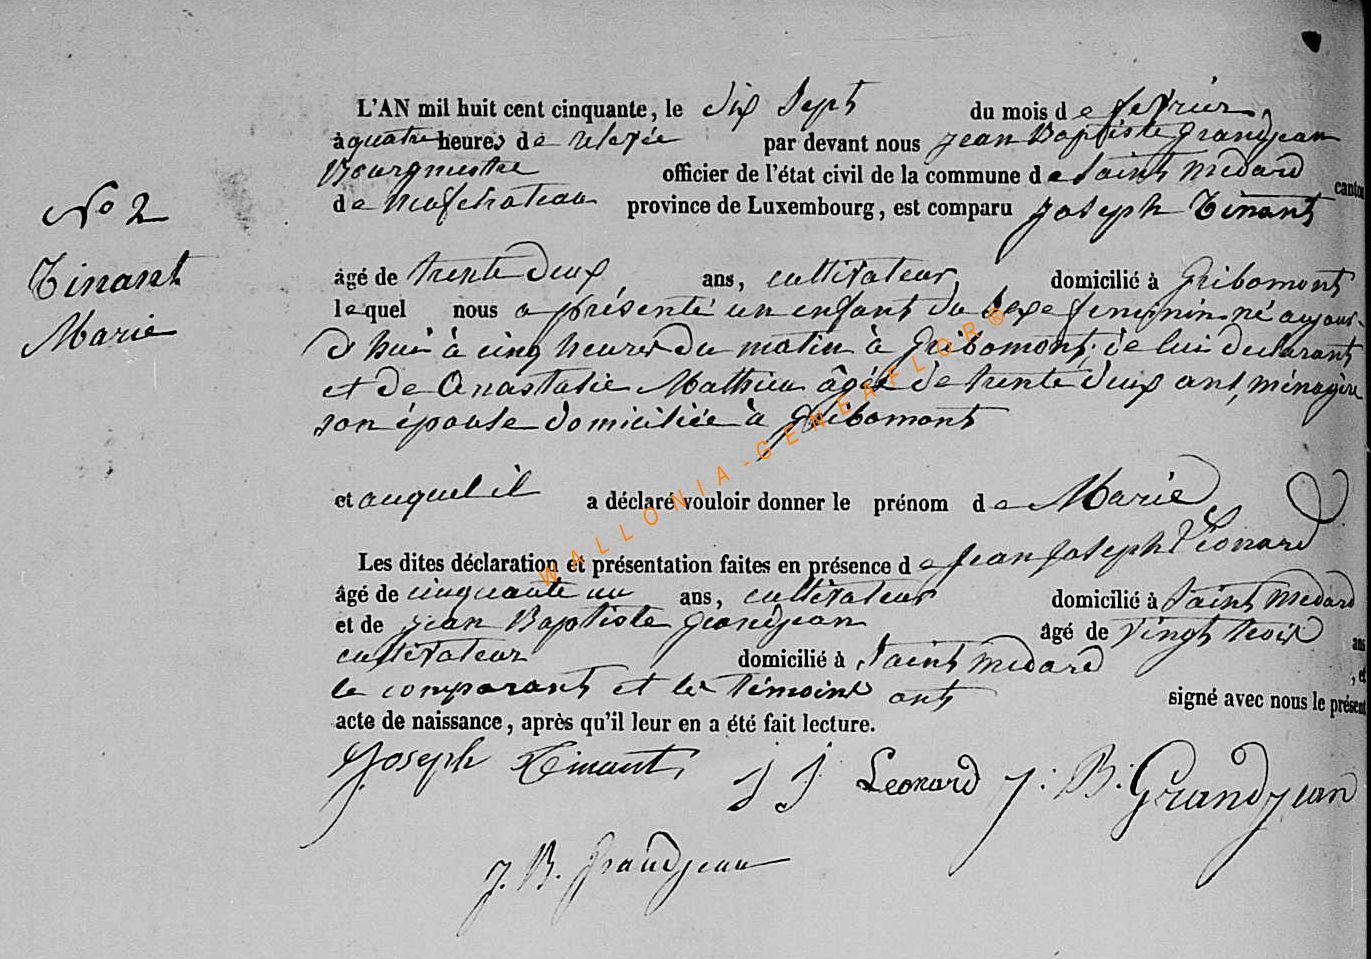 N° 2
Tinant
Marie
L'AN mil huit cent cinquante, le dix sept du mois de fevrier
à quatre heures de relevée par devant nous jean Baptiste grandjean
Bourgmestre officier de l'état civil de la commune de Saint Medard canton
de Neufchateau province de Luxembourg, est comparu joseph Tinant
âgé de trente deux ans, cultivateur domicilié à Gribomont
lequel nous a présenté un enfant du sexe feminin né aujour
d'hui à cinq heures du matin à Gribomont, de lui declarant
et de Anastasie Mathieu âgée de trente deux ans, ménagère
son épouse domiciliée à Gribomont
et auquel il a déclaré vouloir donner le prénom de Marie
Les dites déclaration et présentation faites en présence de jean joseph Léonard
âgé de cinquante un ans, cultivateur domicilié à Saint Medard
et de jean Baptiste grandjean âgé de vingt trois ans
cultivateur domicilié à Saint Medard , et
le comparant et les témoins ont signé avec nous le présent
acte de naissance, après qu'il leur en a été fait lecture.
Joseph Tinant J J Leonard J. B. Grandjean
J. B. Grandjean
WALLONIA-GENEAFLOR®